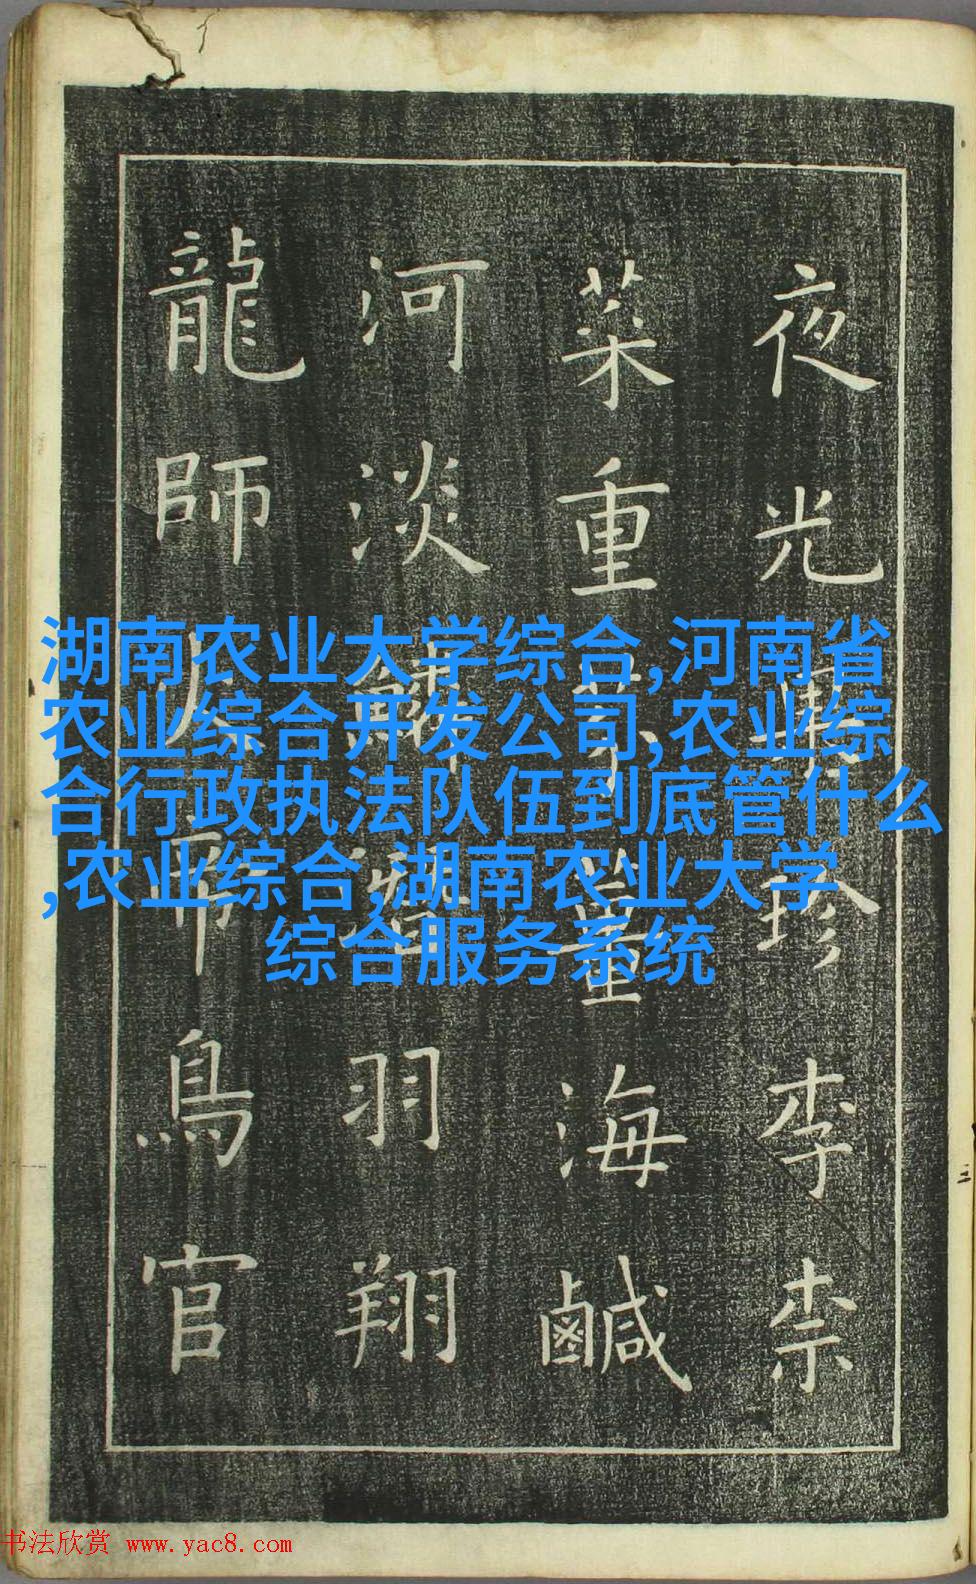 夜光珍李柰
菜重海鹹
河淡羽翔
龍師帝鳥官
湖南农业大学综合,河南省
农业综合开发公司,农业综
合行政执法队伍到底管什么
,农业综合,湖南农业大学
综合服务系统
书法欣赏 www.yac8.com